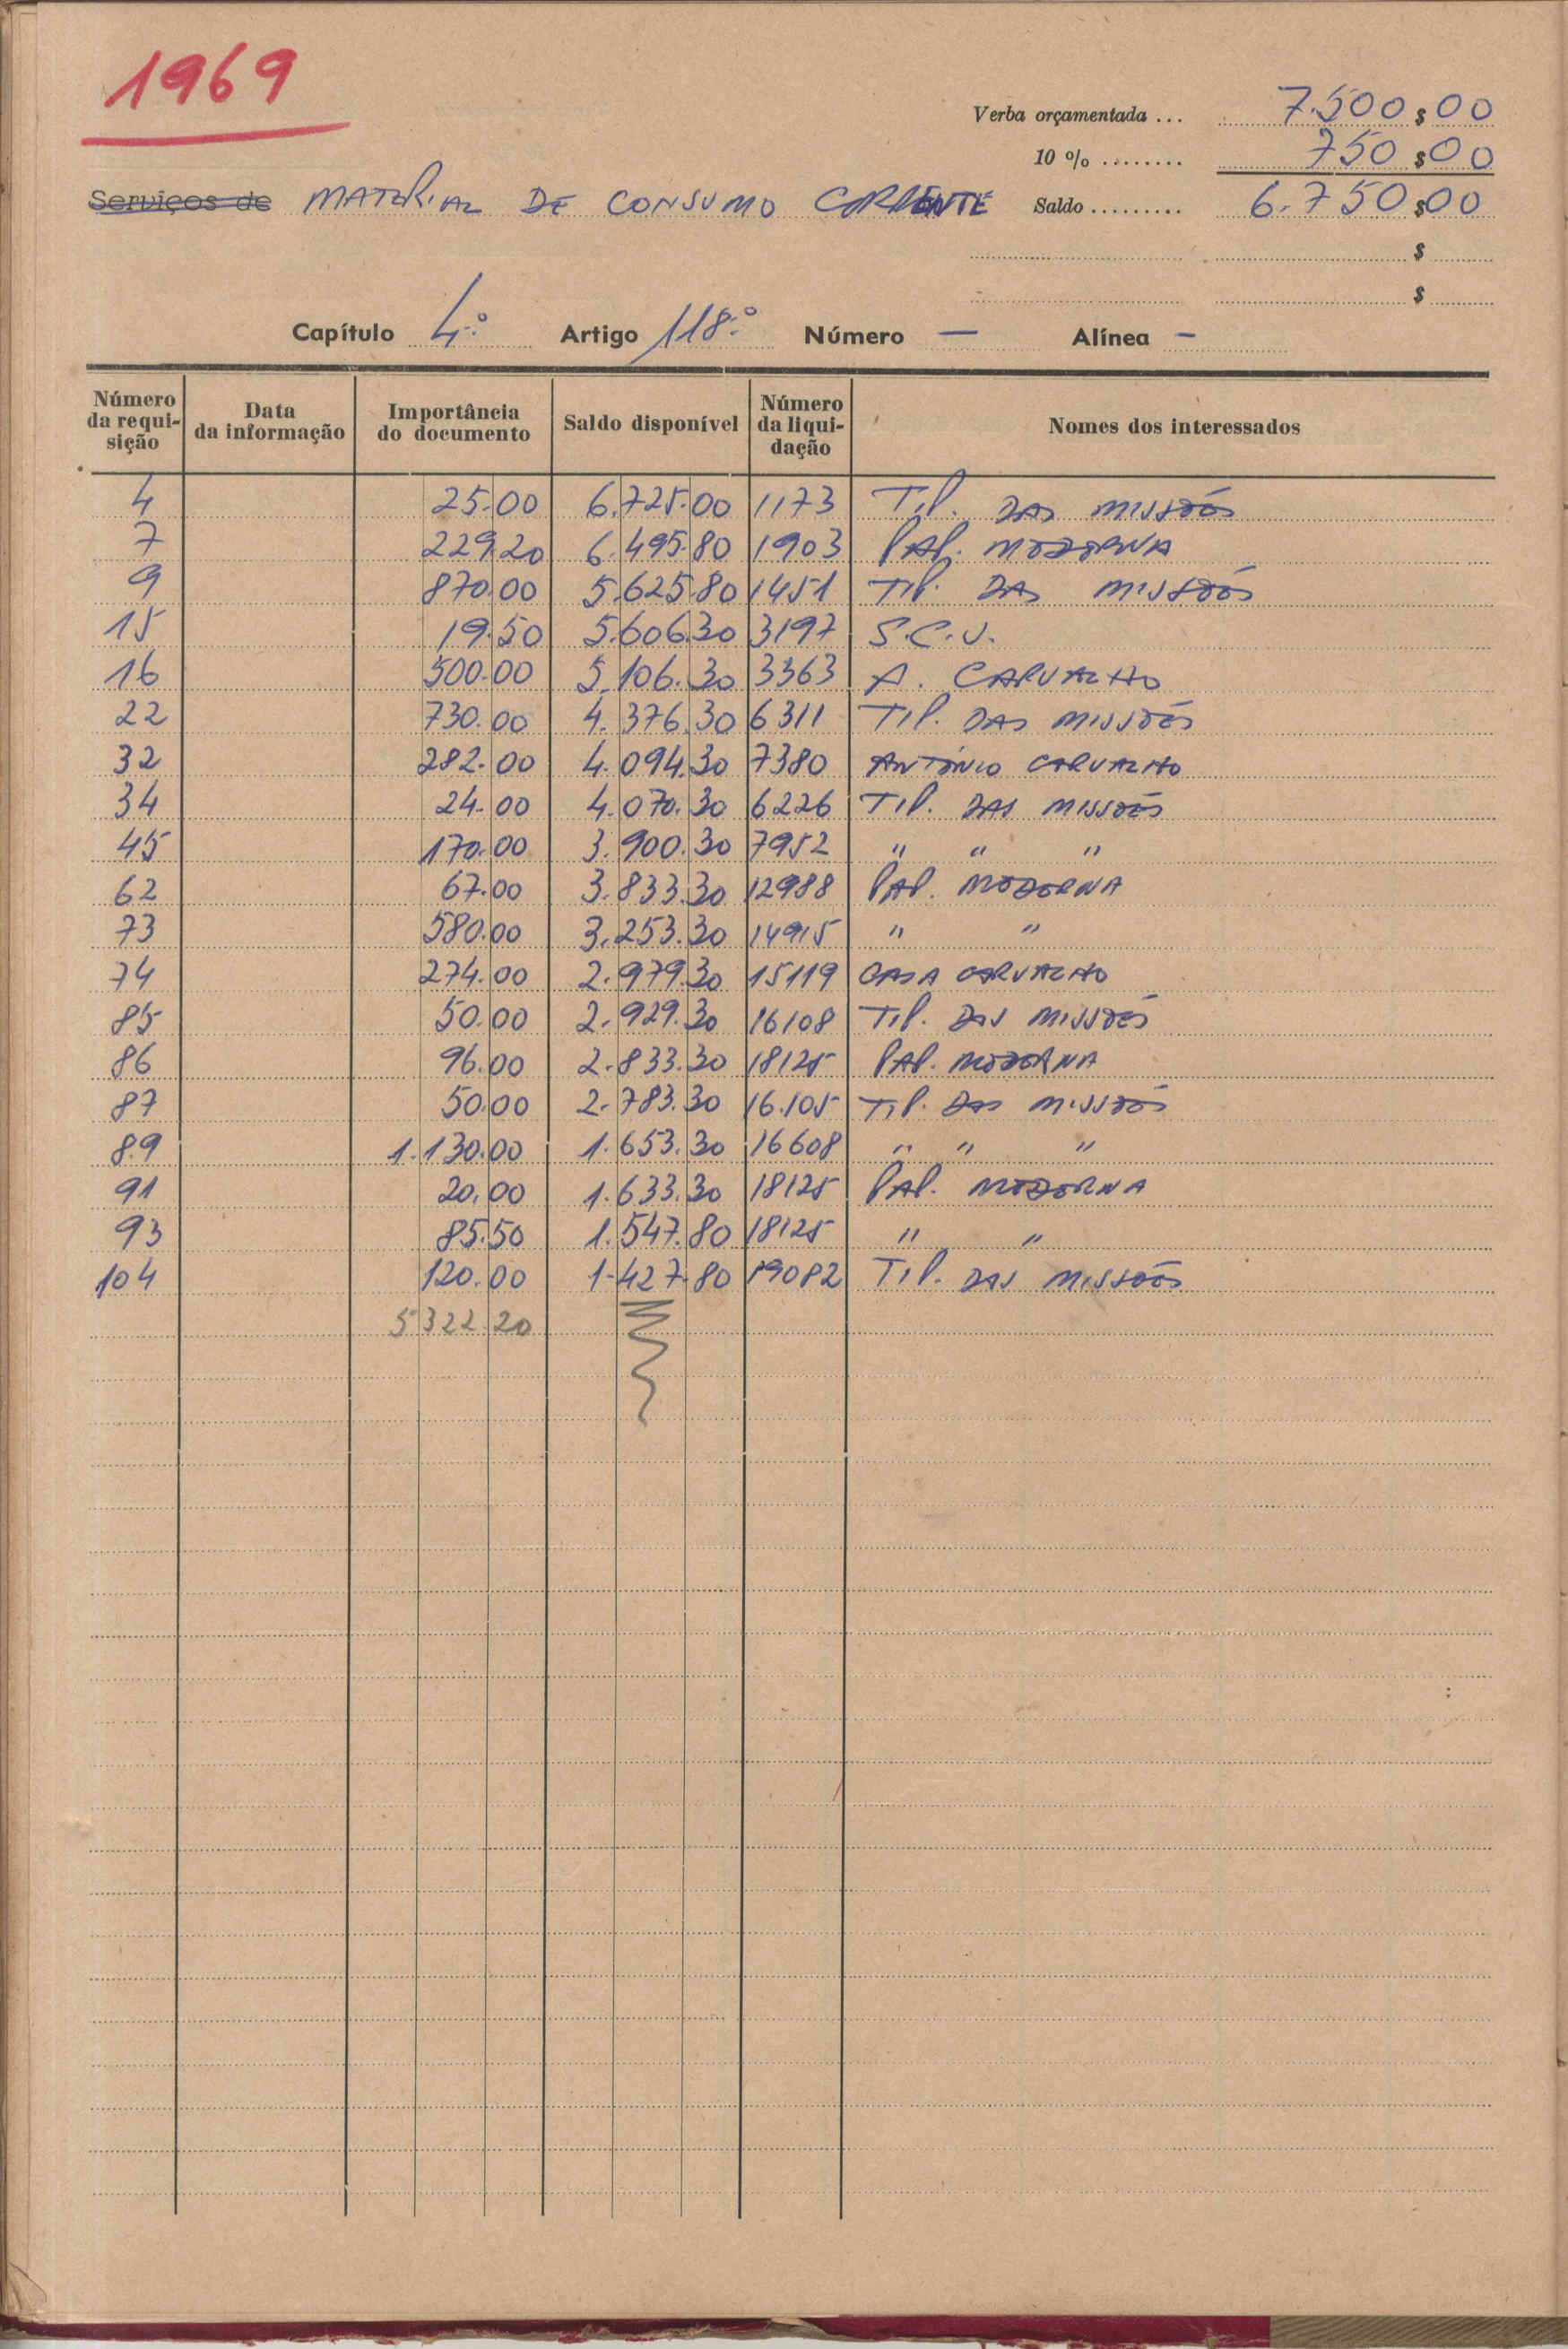 1969
Verba orçamentada ... 7.500$00
10 % ........ 750$00
Serviços de MATERIAL DE CONSUMO CORRENTE Saldo ......... 6.750$00
$
$
Capítulo 4.º Artigo 118.º Número — Alínea –
Número da requi- sição Data da informação Importância do documento Saldo disponível Número da liqui- dação Nomes dos interessados
4 25.00 6.725.00 1173 TIP. DAS MISSÕES
7 229.20 6.495.80 1903 PAP. MODERNA
9 870.00 5.625.80 1451 TIP. DAS MISSÕES
15 19.50 5.606.30 3197 S.C.U.
16 500.00 5.106.30 3363 A. CARVALHO
22 730.00 4.376.30 6311 TIP. DAS MISSÕES
32 282.00 4.094.30 7380 ANTÓNIO CARVALHO
34 24.00 4.070.30 6226 TIP. DAS MISSÕES
45 170.00 3.900.30 7952 " " "
62 67.00 3.833.30 12988 PAP. MODERNA
73 580.00 3.253.30 14915 " "
74 274.00 2.979.30 15119 CASA CARVALHO
85 50.00 2.929.30 16108 TIP. DAS MISSÕES
86 96.00 2.833.30 18125 PAP. MODERNA
87 50.00 2.783.30 16.105 TIP. DAS MISSÕES
89 1.130.00 1.653.30 16608 " " "
91 20.00 1.633.30 18125 PAP. MODERNA
93 85.50 1.547.80 18125 " "
104 120.00 1.427.80 19082 TIP. DAS MISSÕES
5322.20